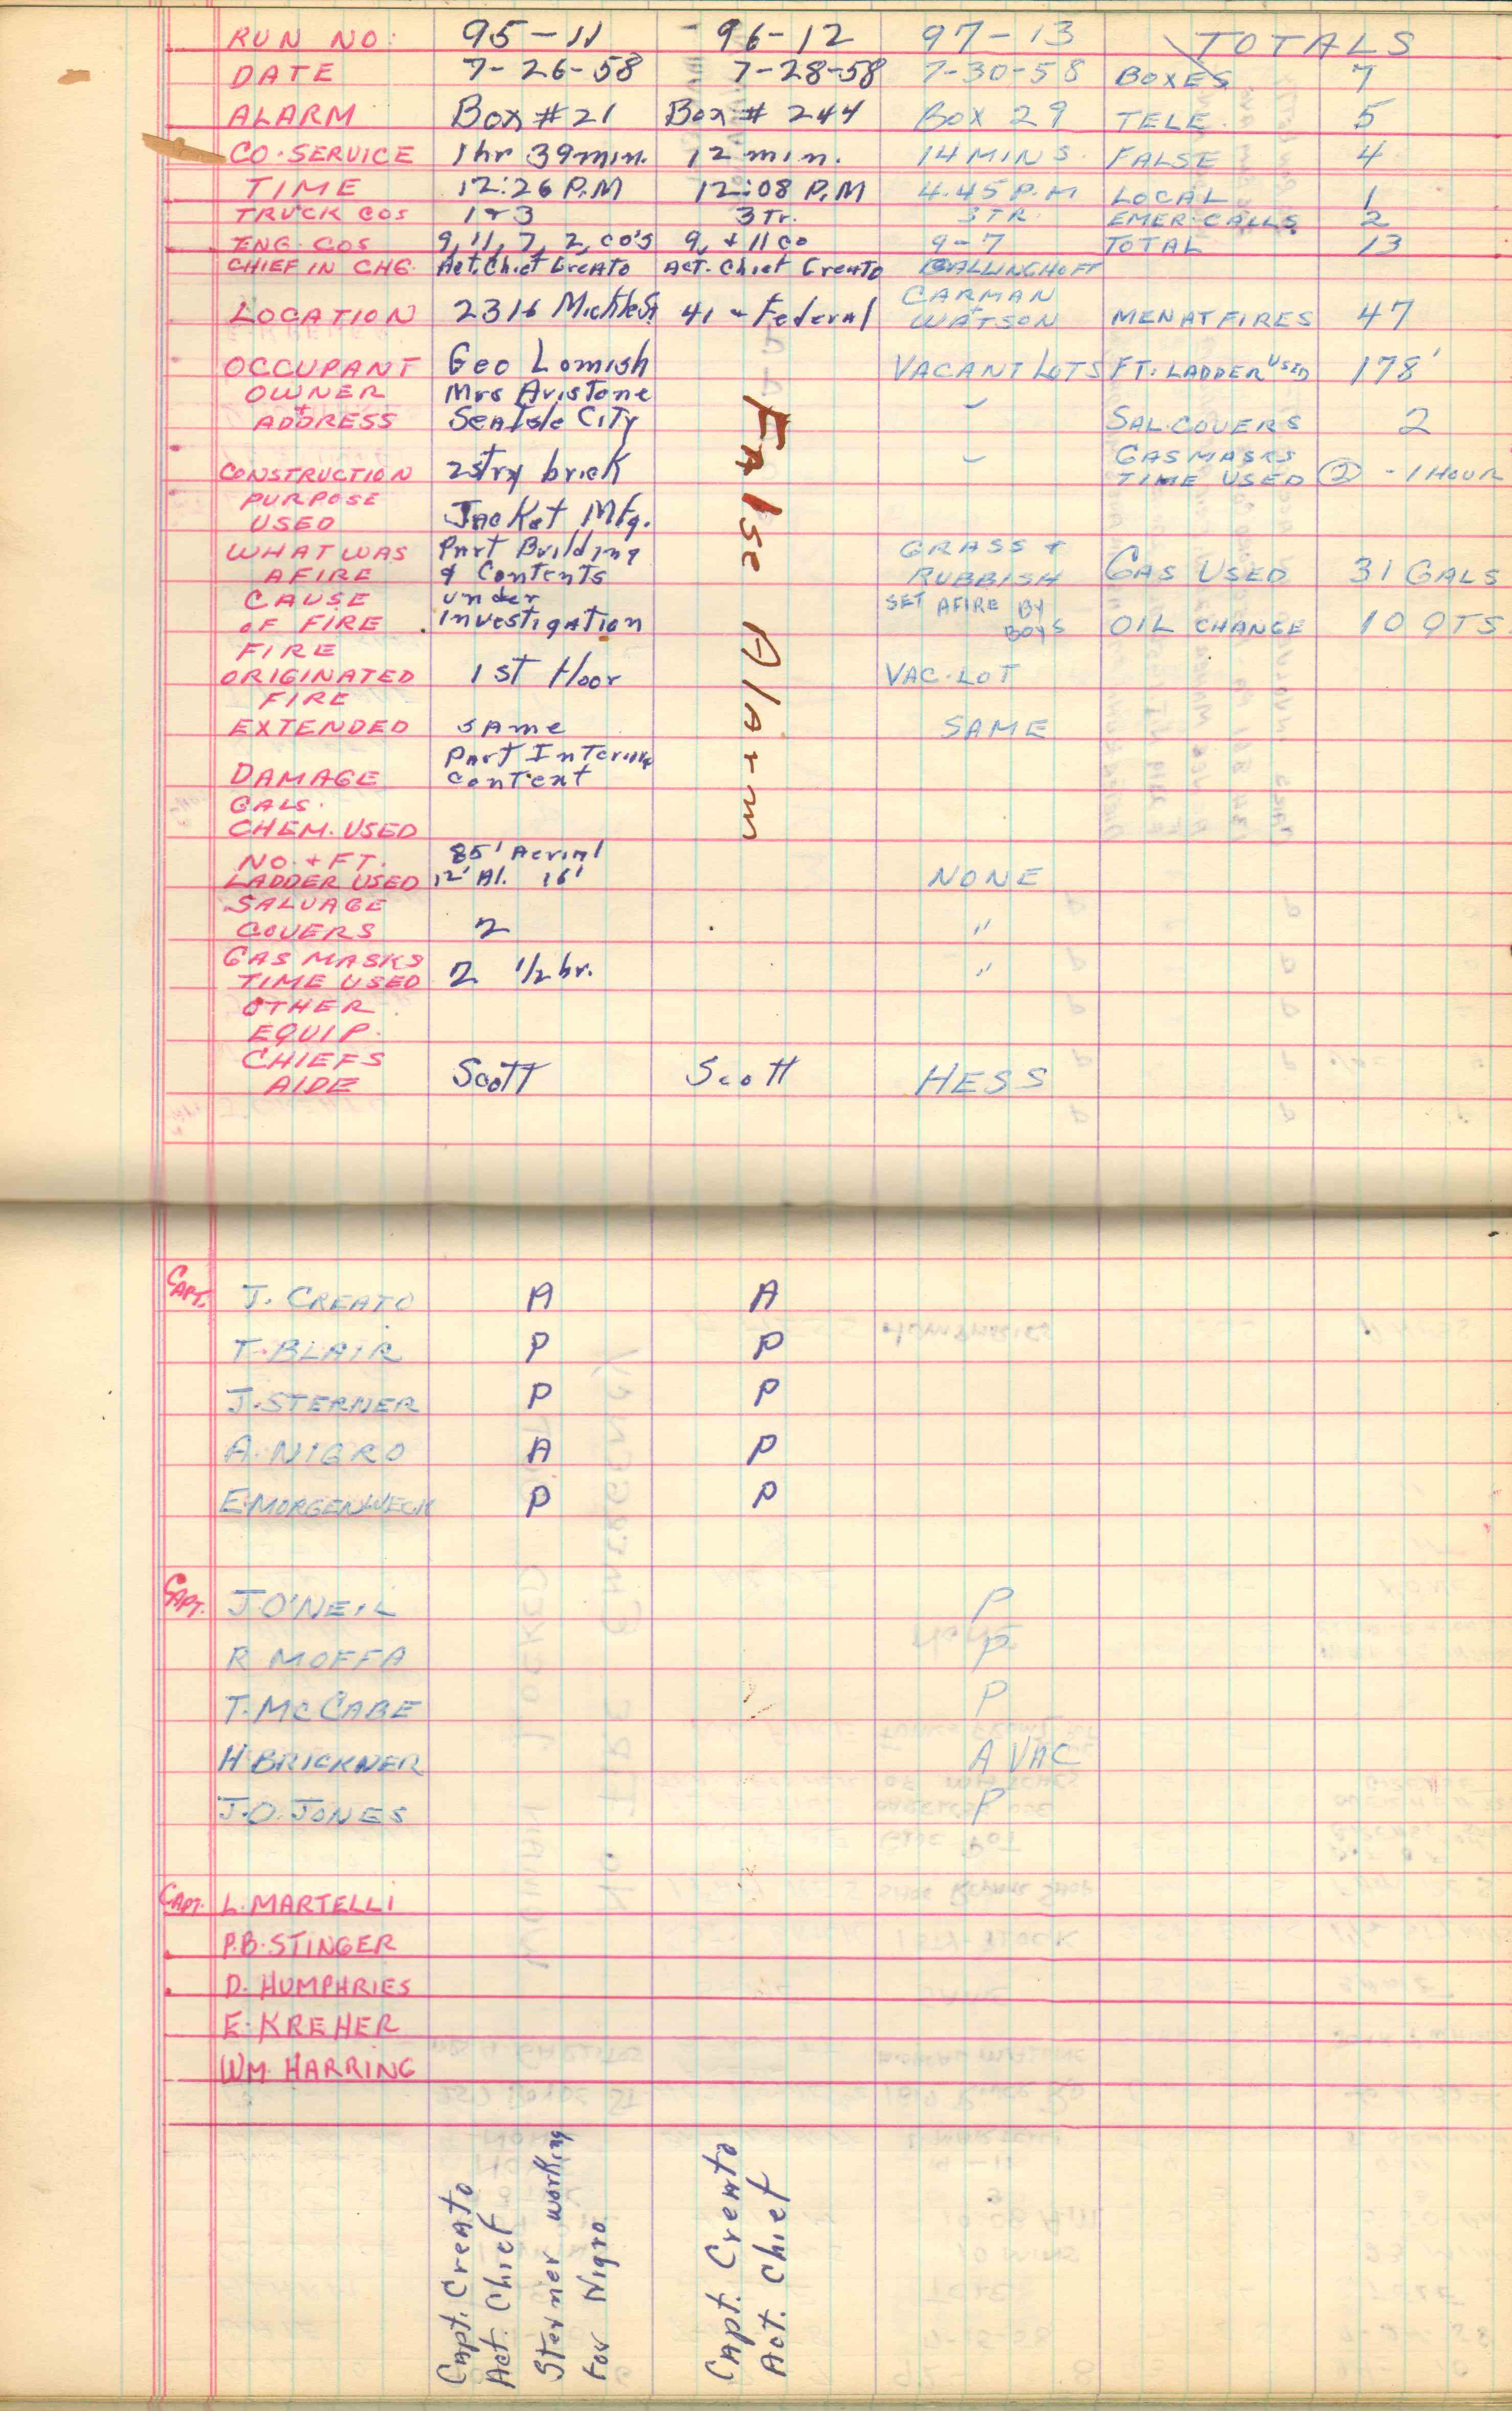 RUN NO: 95-11 96-12 97-13 TOTALS
DATE 7-26-58 7-28-58 7-30-58 BOXES 7
ALARM Box #21 Box # 244 BOX 29 TELE. 5
CO. SERVICE 1hr 39min. 12 min. 14 MINS. FALSE 4
TIME 12:26 P.M 12:08 P.M 4.45 P.M LOCAL 1
TRUCK COS 1 & 3 3 Tr. 3 TR. EMER. CALLS 2
ENG. COS 9, 11, 7, 2, CO'S 9, & 11 co 9-7 TOTAL 13
CHIEF IN CHG. Act. Chief Creato Act. Chief Creato BALLINGHOFF
LOCATION 2316 41 & Federal CARMAN + WATSON MEN AT FIRES 47
OCCUPANT Geo Lomish VACANT LOTS FT. LADDER USED 178'
OWNER Mrs Aristone
+ ADDRESS Sea Isle City SAL. COVERS 2
CONSTRUCTION 2 stry brick GAS MASKS TIME USED ② - 1 HOUR
PURPOSE
USED Jacket Mfg.
WHAT WAS Part Building GRASS +
AFIRE & Contents RUBBISH GAS USED 31 GALS
CAUSE under SET AFIRE BY
OF FIRE Investigation BOYS OIL CHANGE 10 QTS.
FIRE
ORIGINATED 1st floor VAC. LOT
FIRE
EXTENDED same SAME
Part Interior
DAMAGE content
GALS.
CHEM. USED
False Alarm
NO. + FT. 85' Aerial
LADDER USED 12' Al. 16' NONE
SALVAGE
COVERS 2 "
GAS MASKS
TIME USED 2 1/2 hr. "
OTHER
EQUIP.
CHIEFS
AIDE Scott Scott HESS
CAPT. J. CREATO A A
T. BLAIR P P
J. STERNER P P
A. NIGRO A P
E. MORGENWECK P P
CAPT. J. O'NEIL P
R MOFFA P
T. MC CABE P
H BRICKNER A VAC
J. O. JONES P
CAPT. L. MARTELLI
P.B. STINGER
D. HUMPHRIES
E. KREHER
WM. HARRING
Capt. Creato
Act. Chief
Sterner working
for Nigro
Capt. Creato
Act. Chief